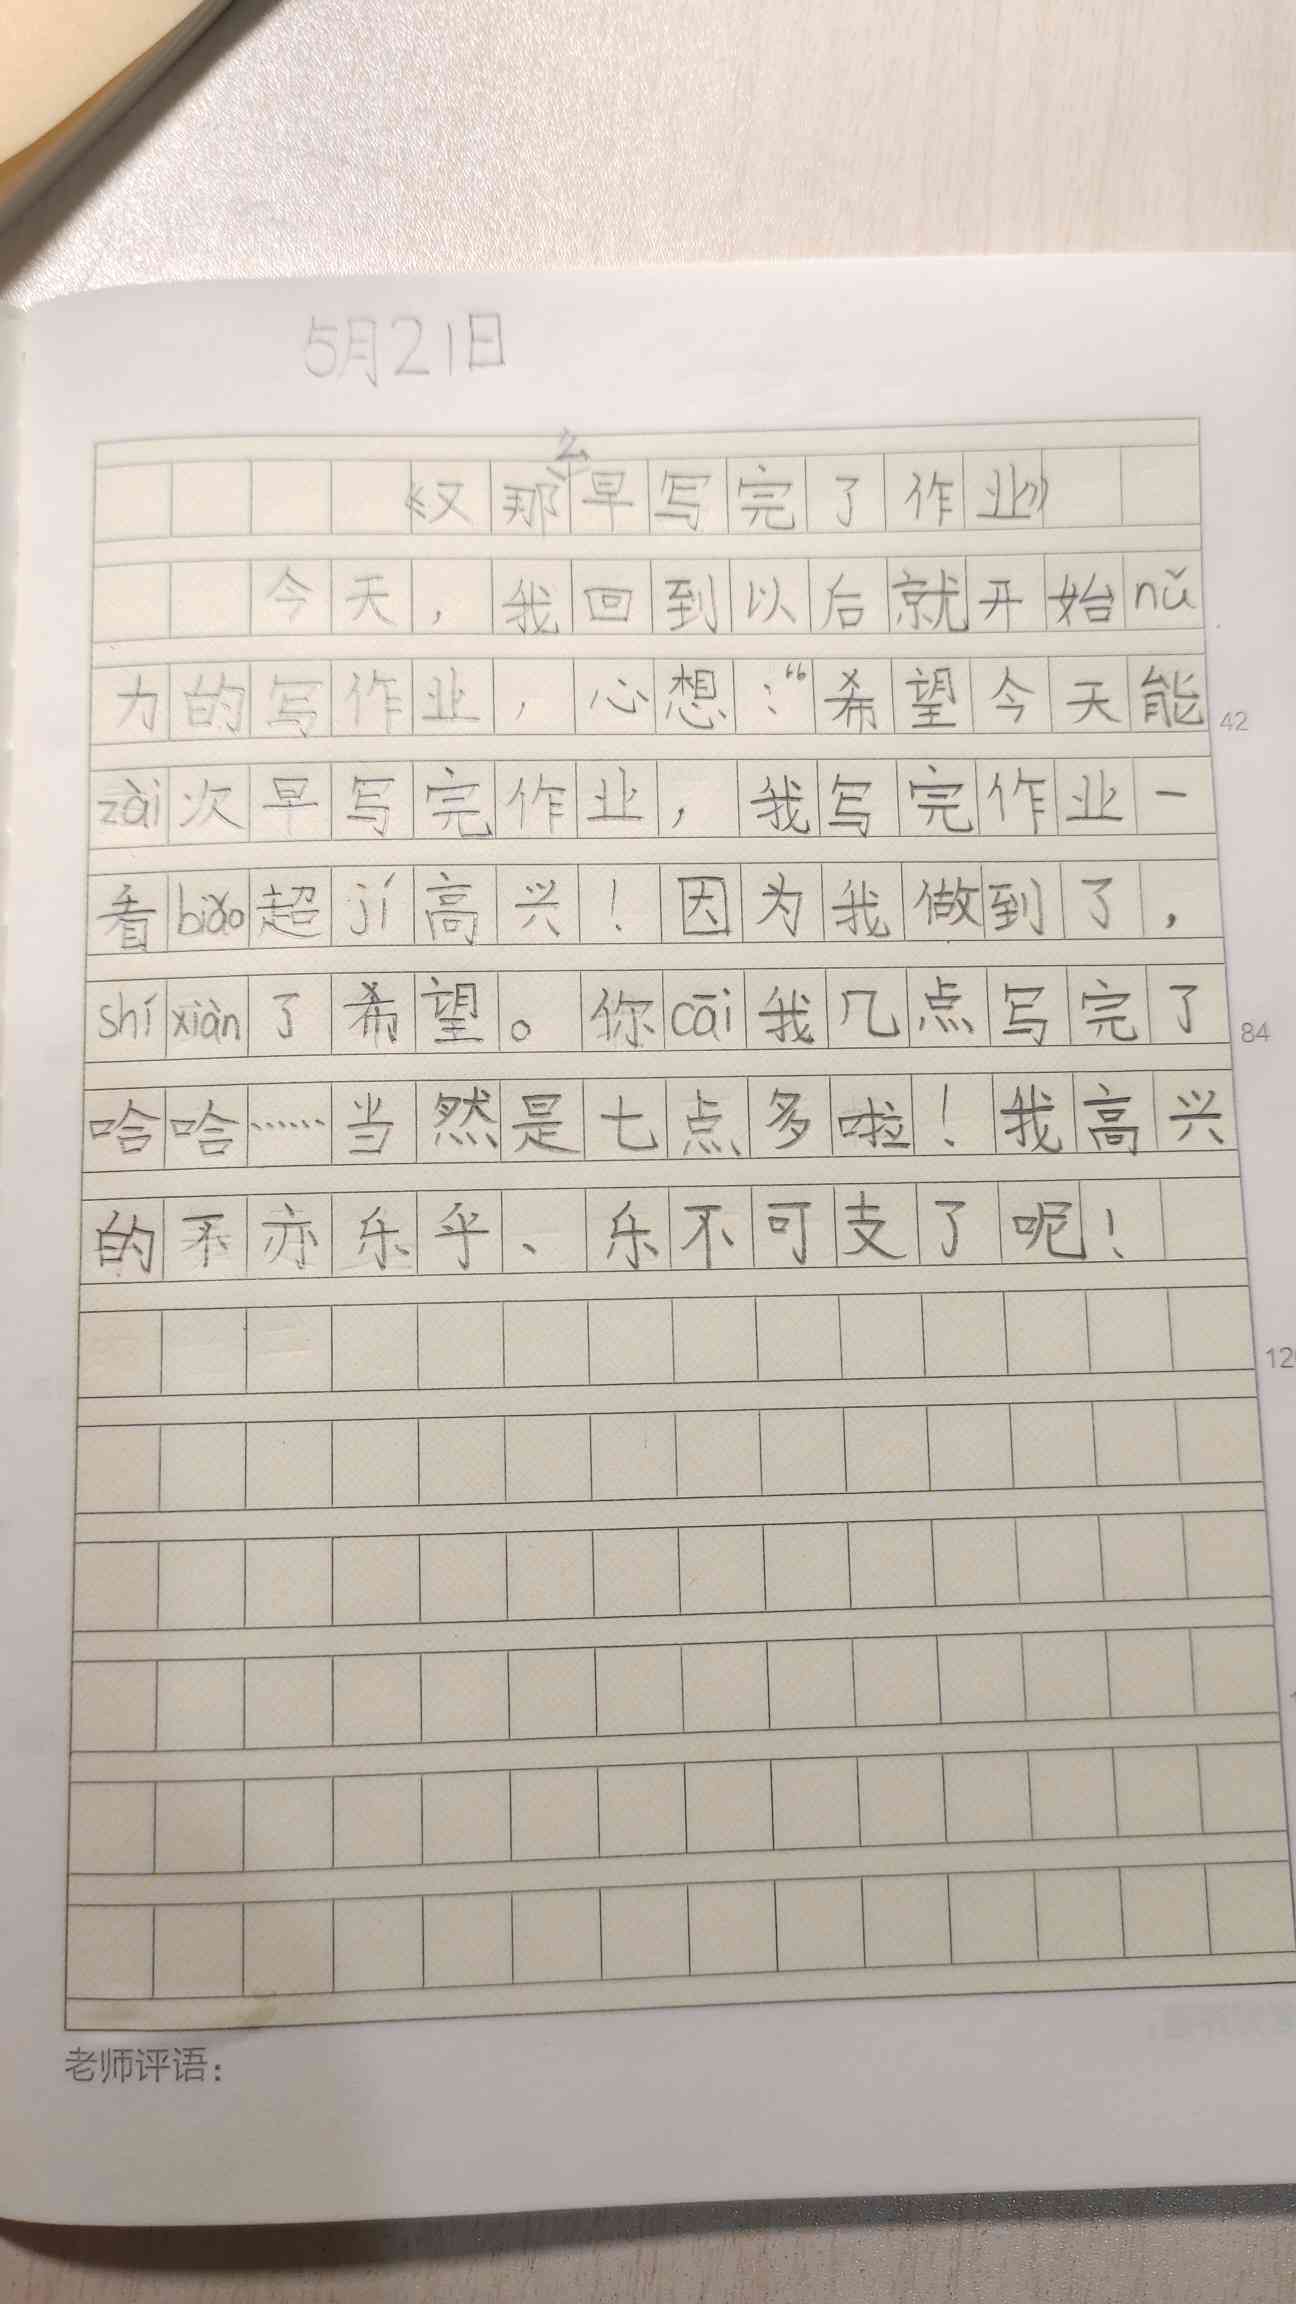 5月21日
《又那么早写完了作业》
今天，我回到以后就开始nǔ
力的写作业，心想：“希望今天能
42
zài次早写完作业，我写完作业一
看biǎo超jí高兴！因为我做到了，
shí xiàn了希望。你cāi我几点写完了
84
哈哈……当然是七点多啦！我高兴
的不亦乐乎、乐不可支了呢！
老师评语：